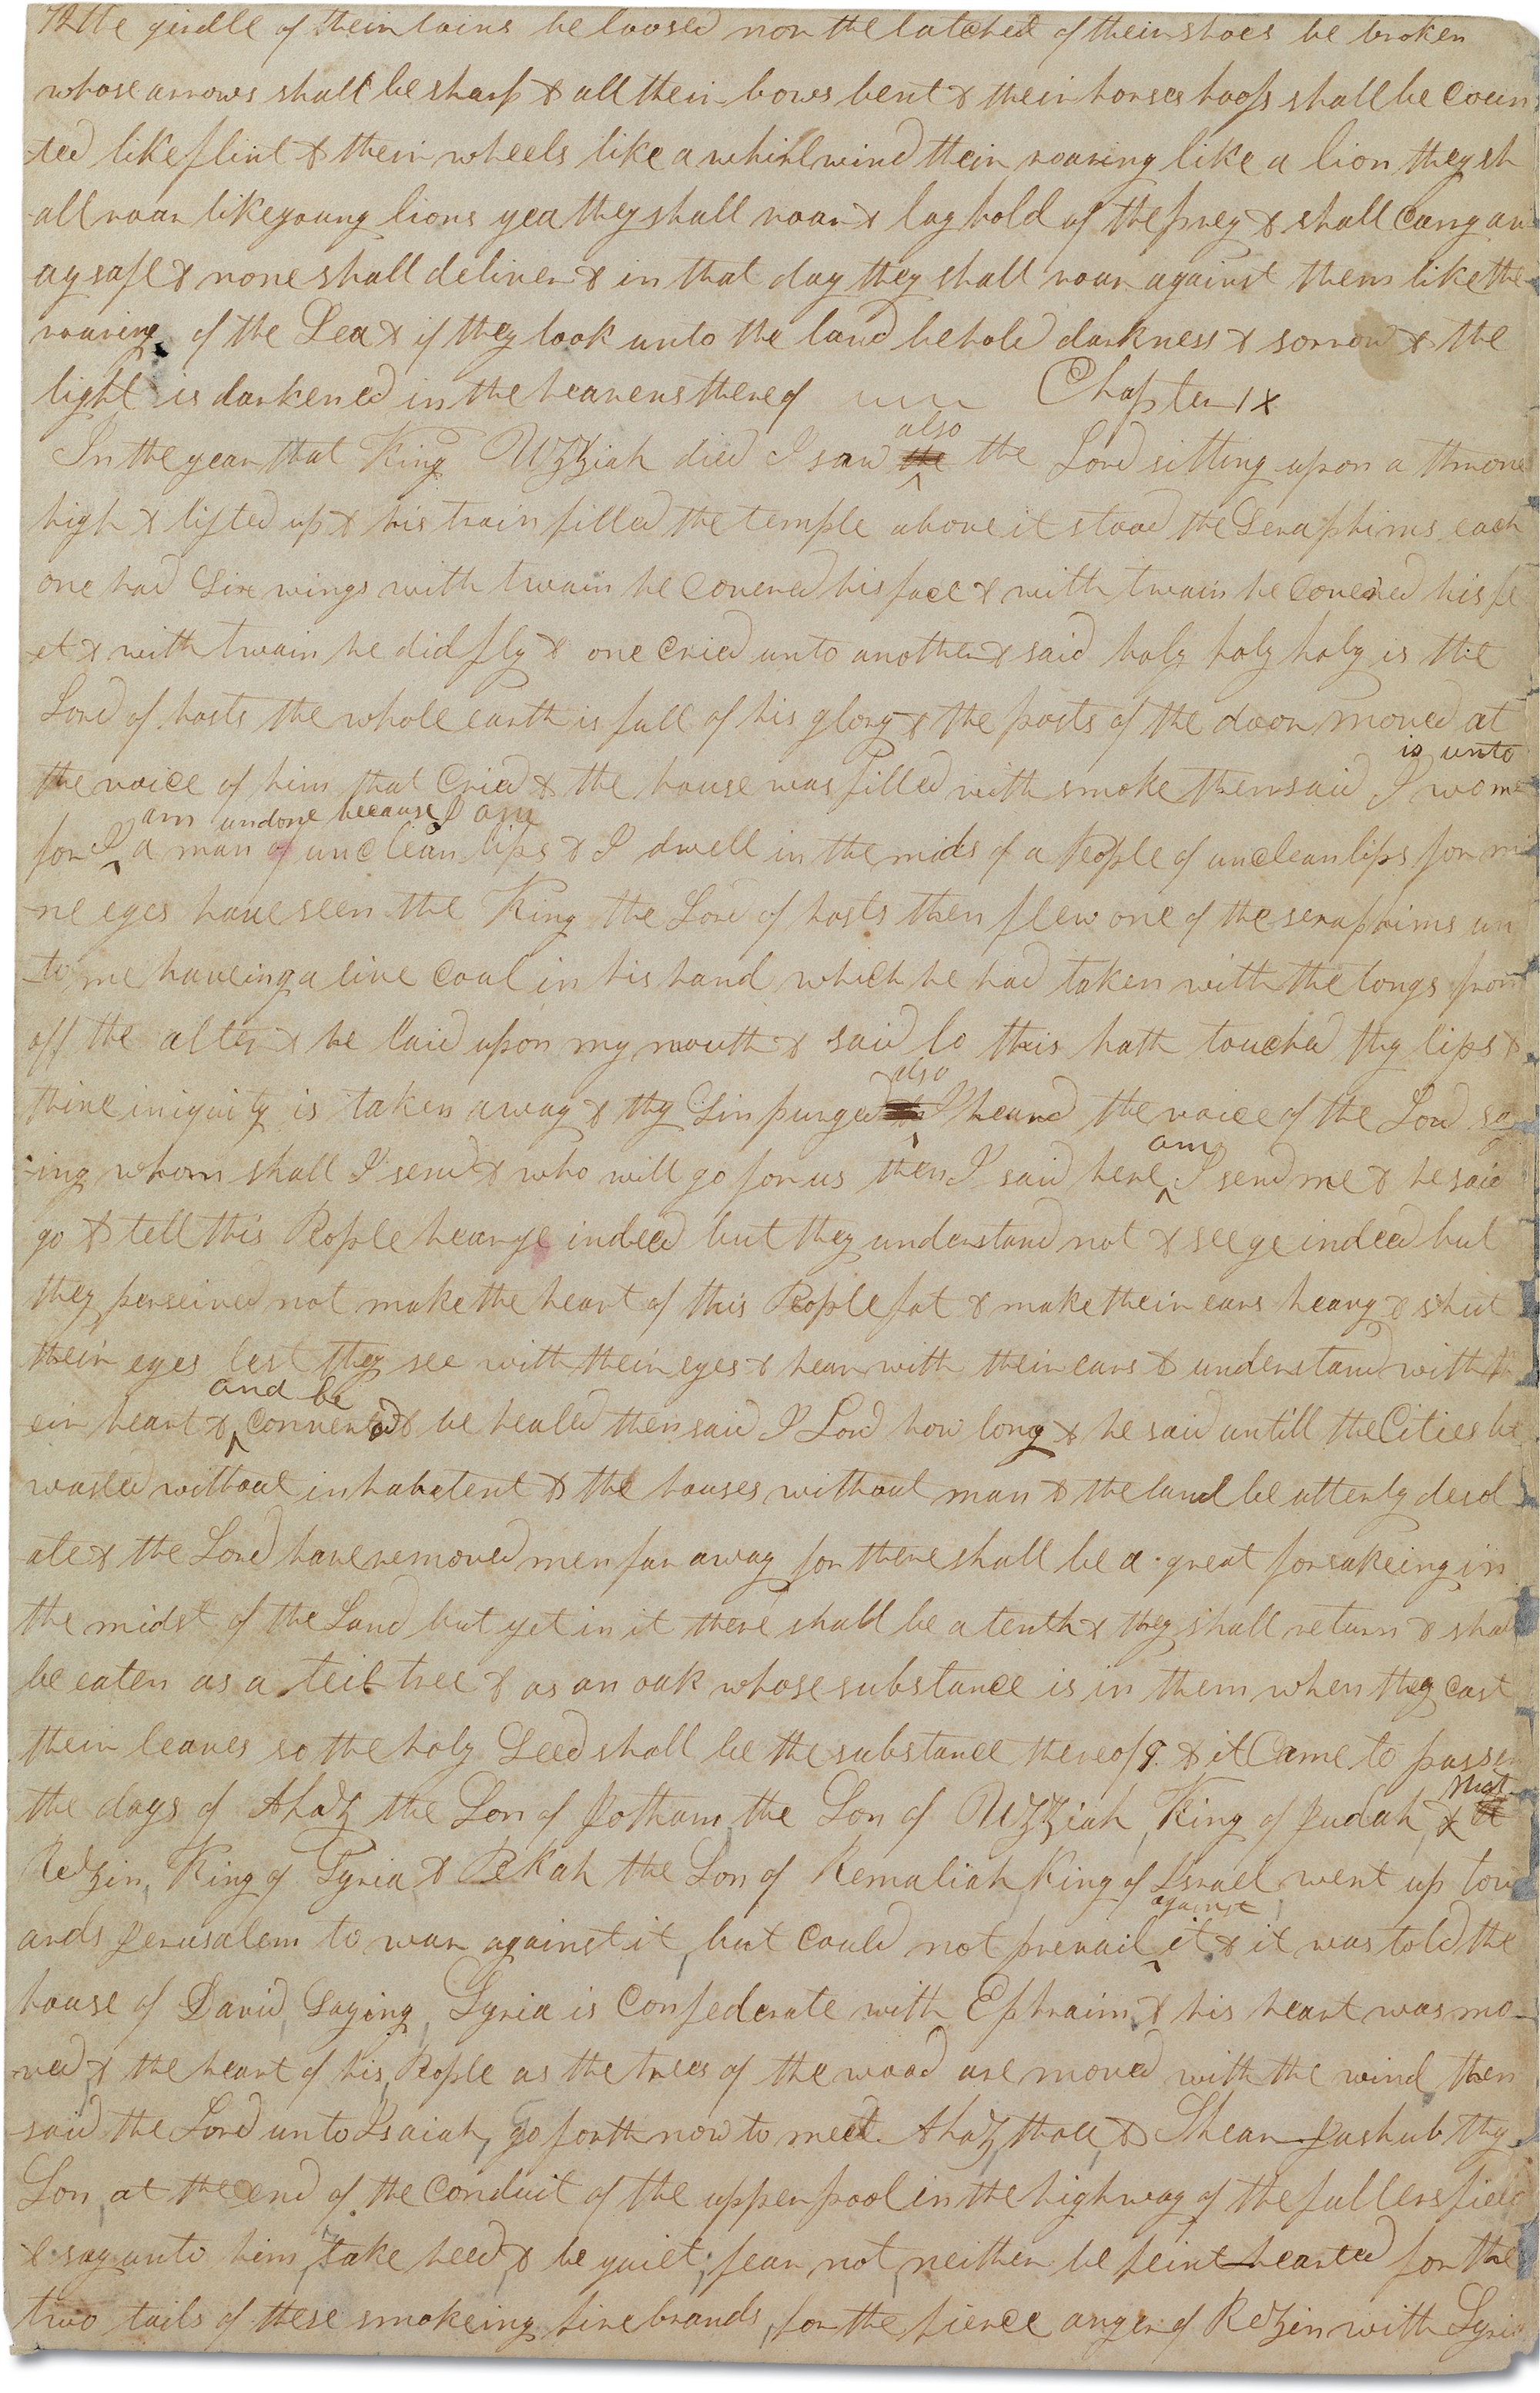 72 the girdle of their loins be loosed nor the latchet of their shoes be broken
whose arrows shall be sharp & all their bows bent & their horses hoofs shall be coun
-ted like flint & their wheels like a whirlwind their roaring like a lion they sh
-all roar like young lions yea they shall roar & lay hold of the prey & shall carry aw
ay safe & none shall deliver & in that day they shall roar against them like the
roaring of the Sea & if they look unto the land behold darkness & sorrow & the
light is darkened in the heavens thereof Chapter IX
also
In the year that King Uzziah died I saw the the Lord sitting upon a throne
high & lifted up & his train filled the temple above it stood the Seraphims each
one had Six wings with twain he covered his face & with twain he covered his fe
et & with twain he did fly & one cried unto another & said holy holy holy is the
Lord of hosts the whole earth is full of his glory & the posts of the door moved at
is unto
the voice of him that Cried & the house was filled with smoke then said I wo me
am undone because I am
for I a man of unclean lips & I dwell in the mids of a People of unclean lips for mi
-ne eyes have seen the King the Lord of hosts then flew one of the seraphims un
-to me haveing a live Coal in his hand which he had taken with the tongs from
off the alter & he laid upon my mouth & said lo this hath touched thy lips &
also
thine iniquity is taken away & thy Sin purged I heard the voice of the Lord say
am
-ing whom shall I send & who will go for us then I said here I send me & he said
go & tell this People hear ye indeed but they understand not & see ye indeed but
they perseived not make the heart of this People fat & make their ears heavy & shut
their eyes lest they see with their eyes & hear with their ears & understand with th
and be
eir heart & converted & be healed then said I Lord how long & he said untill the Cities be
wasted without inhabetent & the houses without man & the land be utterly desol
-ate & the Lord have removed men far away for there shall be a great forsakeing in
the midst of the Land but yet in it there shall be a tenth & they shall return & shall
be eaten as a teil tree & as an oak whose substance is in them when they cast
their leaves so the holy Seed shall be the substance thereof & it Came to pass in
that
the days of Ahaz the Son of Jotham, the Son of Uzziah, King of Judah, &
Rezin, King of Syria & Pekah the Son of Remaliah King of Israel, went up tow
against
ards Jerusalem to war against it, but could not prevail it & it was told the
house of David, Saying, Syria is Confederate with Ephraim, & his heart was mo-
ved, & the heart of his People as the trees of the wood are moved with the wind then
said the Lord unto Isaiah, go forth now to meet Ahaz, thou, & Shear-Jashub thy
Son, at the end of the Conduit of the upper pool in the highway of the fullers field
& say unto him, take heed, & be quiet; fear not, neither be feint-hearted for the
two tails of these smokeing firebrands, for the fierce anger of Rezin with Syria